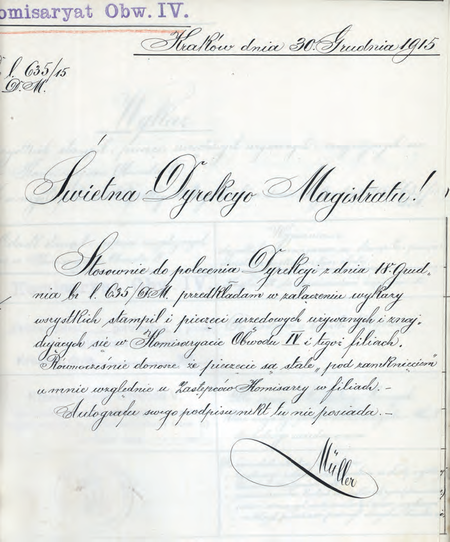 omisaryat Obw. IV.
Kraków dnia 30. Grudnia 1915
l. 635/15
D. M.
Świetna Dyrekcyo Magistratu!
Stosownie do polecenia Dyrekcyi z dnia 18. Grud-
nia b. l. 635/D.M. przedkładam w załączeniu wykazy
wszystkich stampil i pieczęci urzędowych używanych i znaj-
dujących się w Komisaryacie Obwodu IV i tegoż filiach.
Równocześnie donoszę że pieczęcie są "stale" pod zamknięciem
u mnie względnie u Zastępców Komisarzy w filiach. –
Autografu swego podpisu nikt tu nie posiada. –
Müller